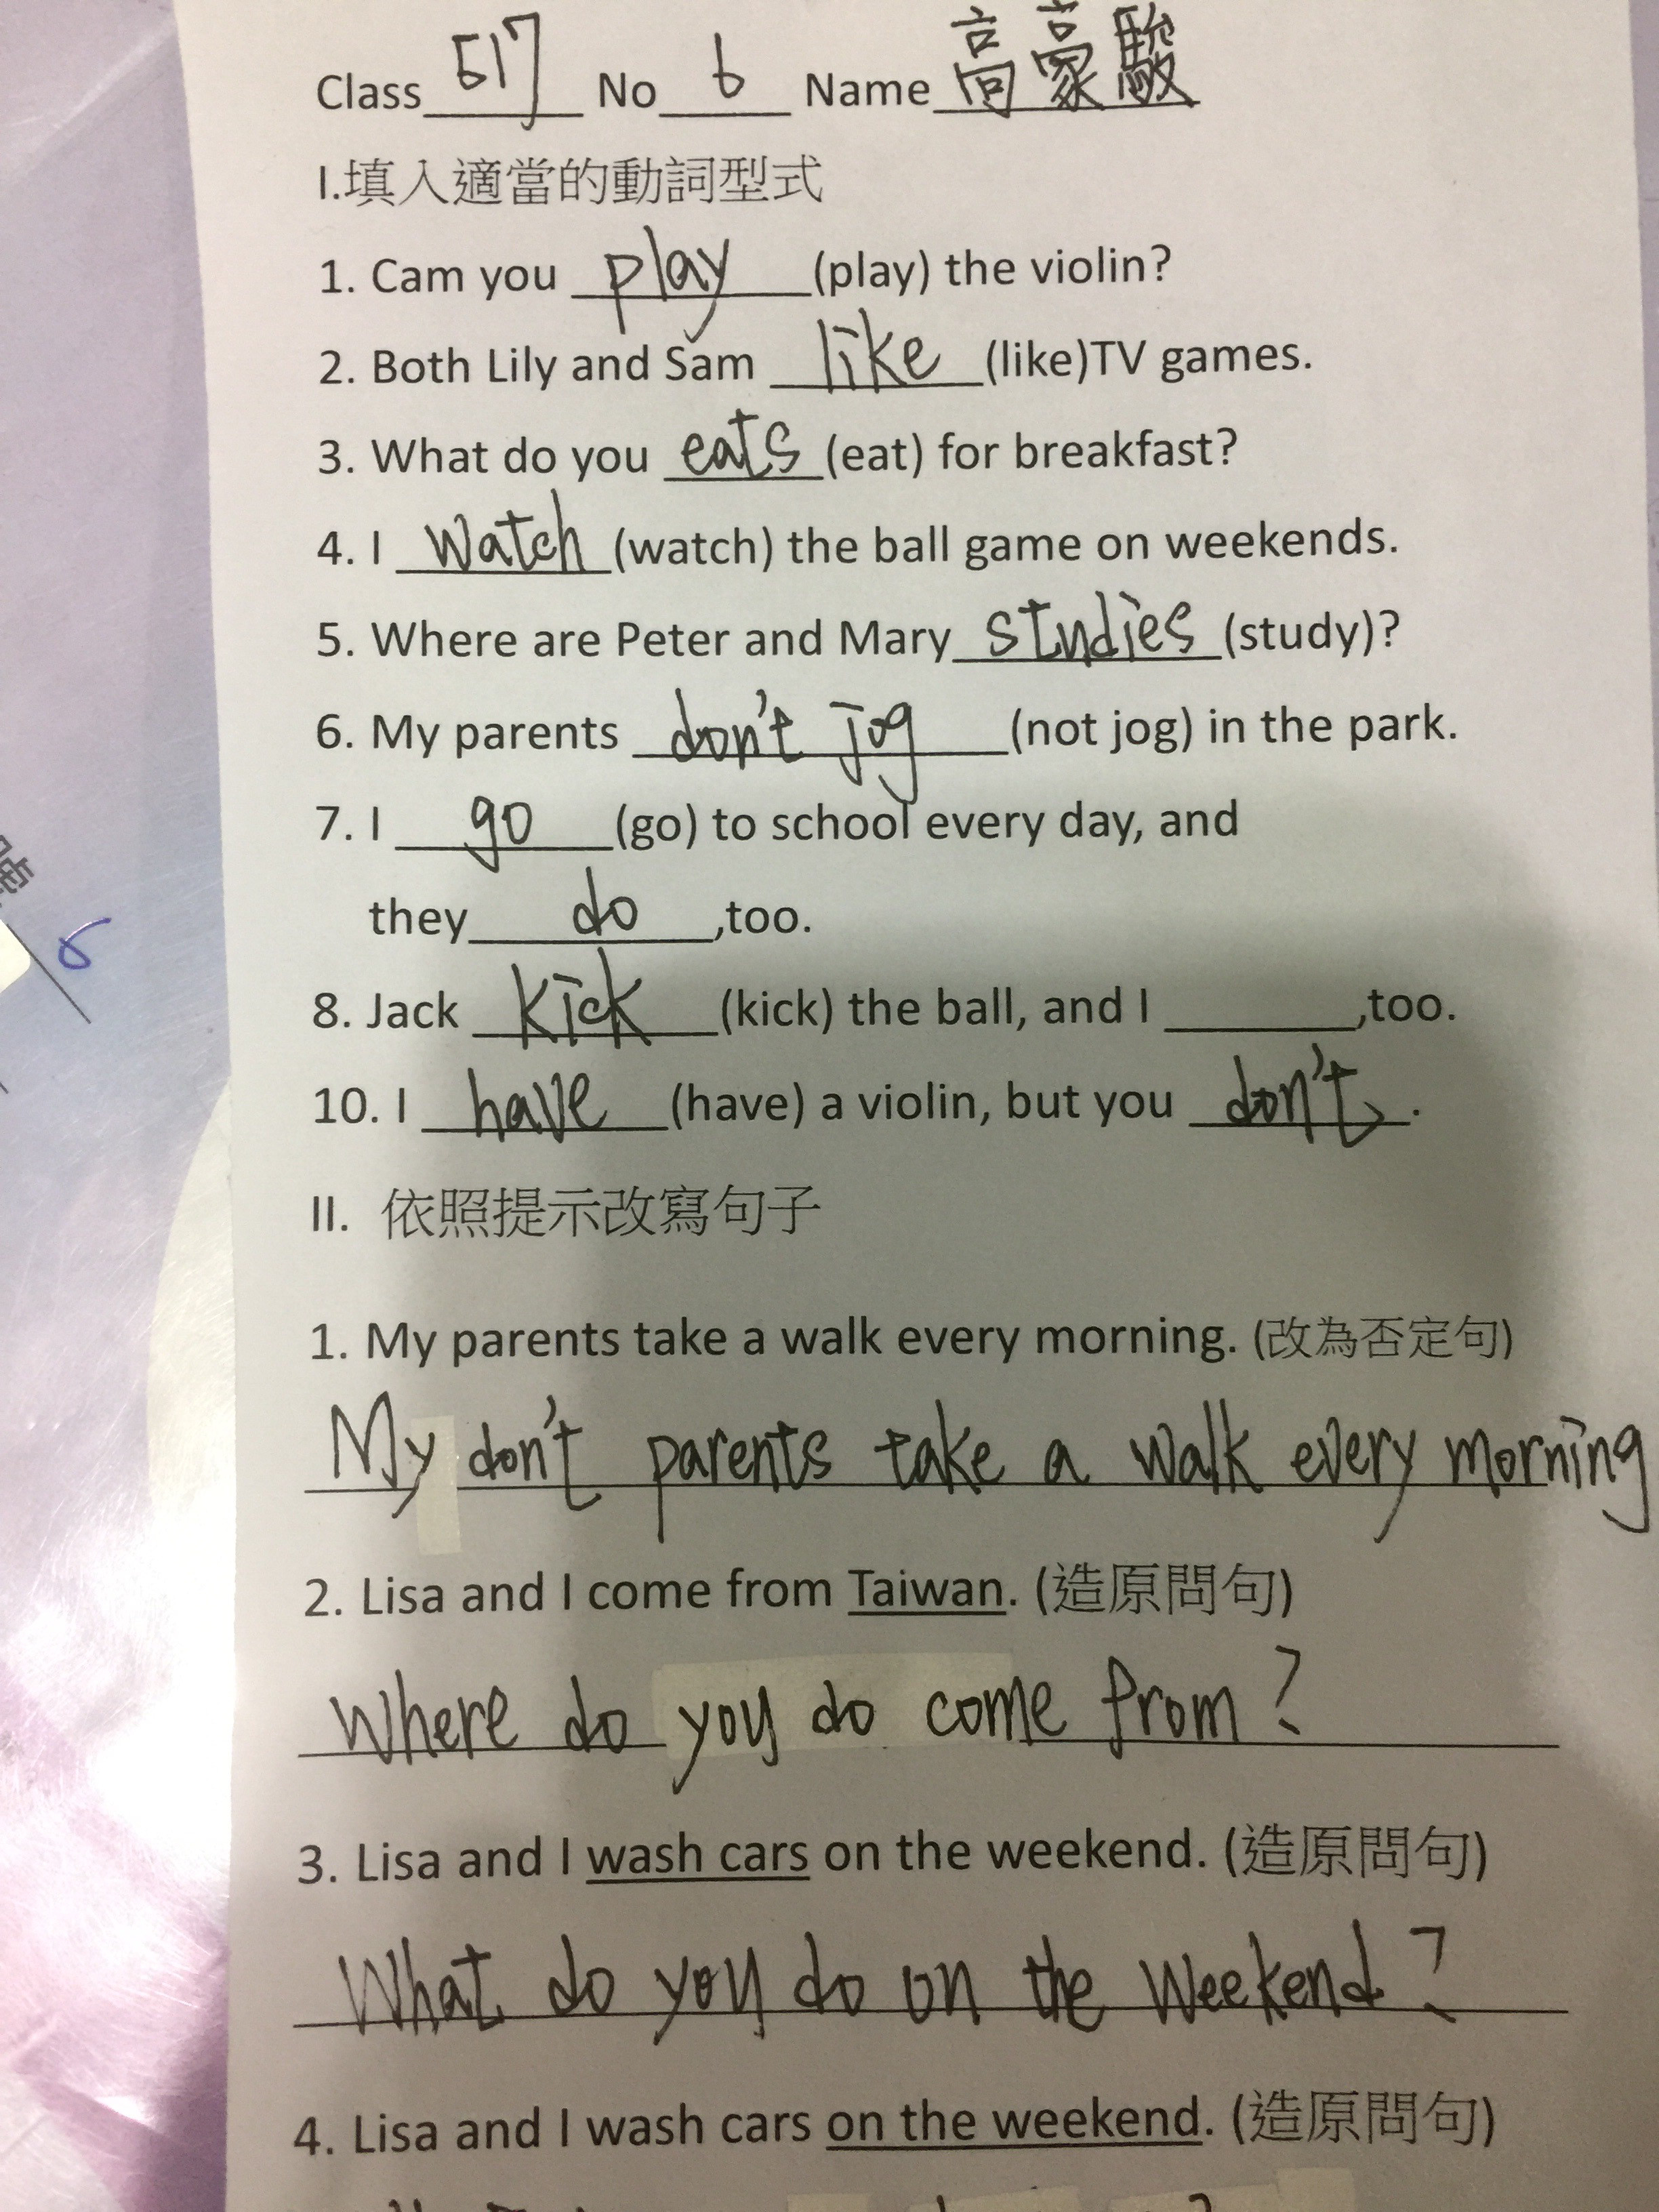 Class 517 No 6 Name 高豪駿
I.填入適當的動詞型式
1. Cam you play (play) the violin?
2. Both Lily and Sam like (like)TV games.
3. What do you eats (eat) for breakfast?
4. I watch (watch) the ball game on weekends.
5. Where are Peter and Mary studies (study)?
6. My parents don't jog (not jog) in the park.
7. I go (go) to school every day, and
they do ,too.
8. Jack kick (kick) the ball, and I ______,too.
10. I have (have) a violin, but you don't.
II. 依照提示改寫句子
1. My parents take a walk every morning. (改為否定句)
My don't parents take a walk every morning
2. Lisa and I come from Taiwan. (造原問句)
Where do you do come from?
3. Lisa and I wash cars on the weekend. (造原問句)
What do you do on the weekend?
4. Lisa and I wash cars on the weekend. (造原問句)
6